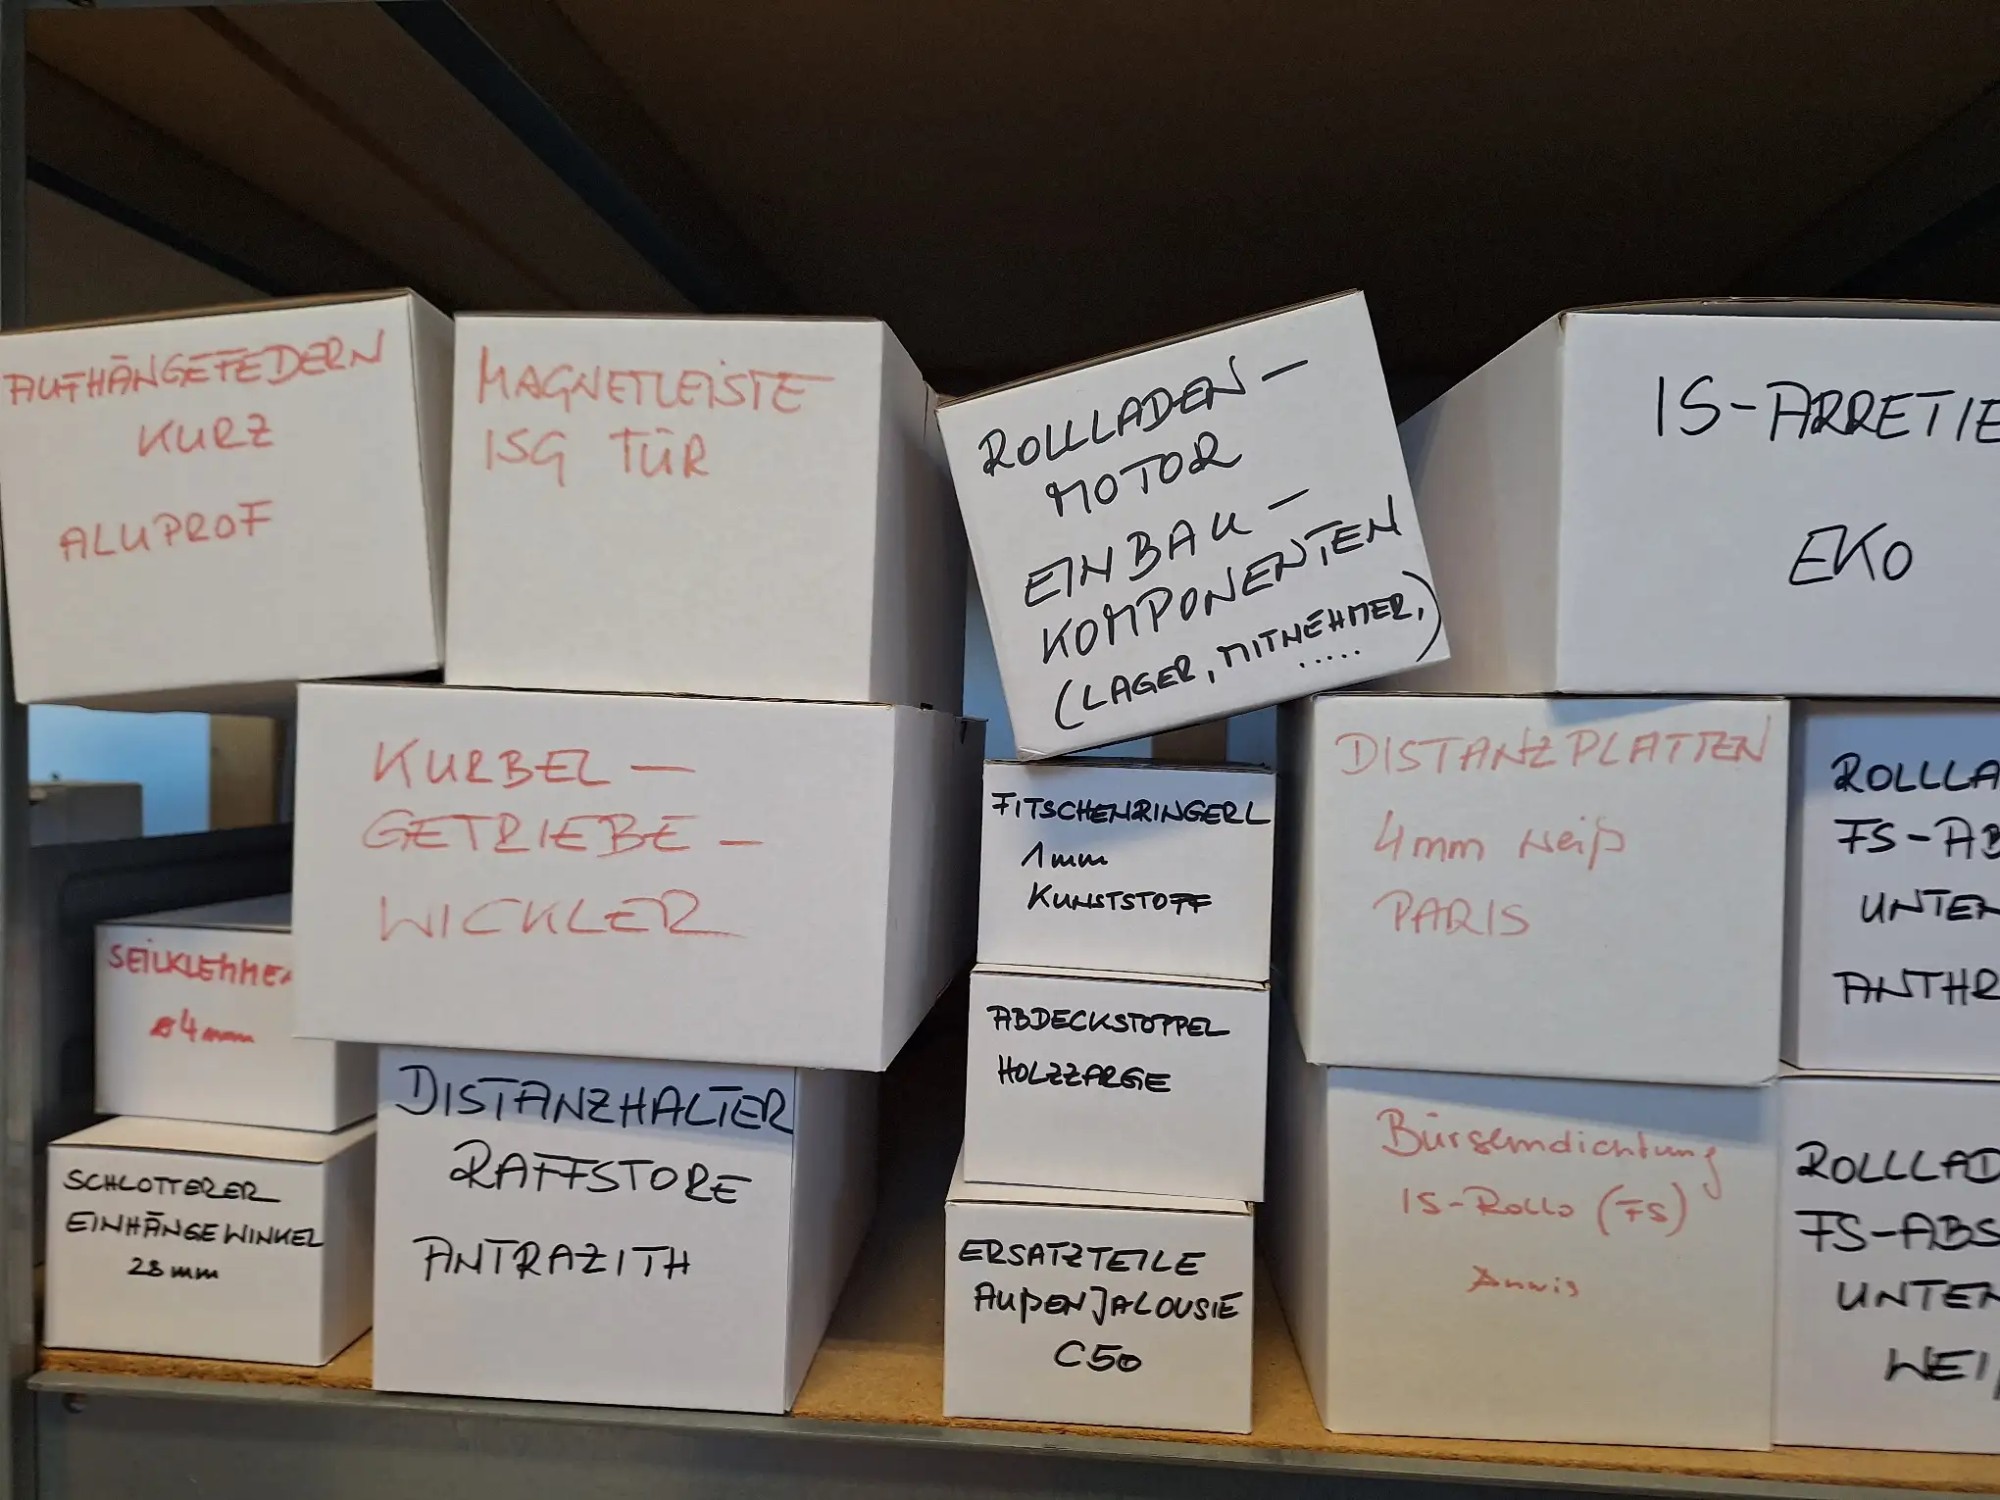 AUFHÄNGEFEDERN
KURZ
ALUPROF
MAGNETLEISTE
ISG TÜR
ROLLLADEN-
MOTOR
EINBAU-
KOMPONENTEN
(LAGER, MITNEHMER,
.....)
IS-ARRETIE
EKO
KURBEL-
GETRIEBE-
WICKLER
FITSCHENRINGERL
1mm
KUNSTSTOFF
DISTANZPLATTEN
4mm weiß
PARIS
ROLLLA
FS-AB
UNTEN
ANTHR
SEILKLEMMEN
ø4mm
ABDECKSTOPPEL
HOLZZARGE
SCHLOTTERER
EINHÄNGEWINKEL
28mm
DISTANZHALTER
RAFFSTORE
ANTRAZITH
ERSATZTEILE
AUßENJALOUSIE
C50
Bürsemdichtung
IS-Rollo (FS)
Anwis
ROLLLAD
FS-ABS
UNTEN
WEIß